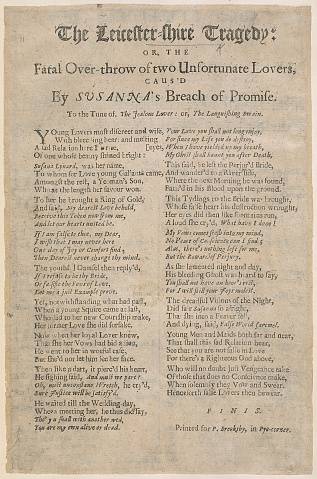 The Leicester-shire Tragedy:
OR, THE
Fatal Over-throw of two Unfortunate Lovers,
CAUS'D
By SUSANNA's Breach of Promise.
To the Tune of, The Jealous Lover: or, The Languishing Swain.
YOung Lovers most discreet and wise,
With bleeding heart and melting Eyes,
A sad Relation here I write,
Of one whose beauty shined bright:
Susanna Lynard, was her name,
To whom for Love young Gallants came,
Amongst the rest, a Yeoman's Son,
Who at the length her favour won.
To her he brought a Ring of Gold,
And said, My dearest Love behold,
Receive this Token now from me,
And let our hearts united be.
If I am false to thee, my Dear,
I wish that I may never have
One day of Joy or Comfort
Then Dearest never change thy mind.
The youthful Damsel then reply'd,
If I refuse to be thy Bride,
Or falsifie the Power of Love,
Let me a just Example prove.
Yet, notwithstanding what had past,
When a young Squire came at last,
Who had to her new Courtship make,
Her former Love she did forsake.
Now when her loyal Lover knew,
That she her Vows had bid adieu,
He went to her in woeful case,
But she'd not let him see her face.
Then like a dart, it pierc'd his heart,
He sighing said, And must we part?
Oh, most unconstant Wretch, he cry'd,
Sure Justice will be satisfy'd.
He waited till the Wedding-day,
When a meeting her, he thus did say,
Tho' you shall with another wed,
You are my own alive or dead.
Your Love you shall not long enjoy,
For since my Life you do destroy,
When I have yielded up my breath,
My Ghost shall haunt you after Death.
This said, he left the Perjur'd Bride,
And wander'd to a River side,
Where the next Morning he was found,
Faint'd in his Blood upon the ground.
This Tydings to the Bride was brought,
Whose false heart his destruction wrought,
Her eyes did then like Fountains run,
Aloud she cry'd, What have I done!
My Vows comes fresh into my mind,
No Peace of Conscience can I find;
Alas, there's nothing left for me,
But the Reward of Perjury.
As she lamented night and day,
His bleeding Ghost was heard to say,
You shall not have an hour's rest,
For I will still your Joys molest.
The dreadful Visions of the Night,
Did fair Susanna so affright,
That she into a Feaver fell,
And dying, said, False World farewel.
Young Men and Maids both far and near,
That shall this sad Relation hear,
See that you are not false in Love
For there's a Righteous God above,
Who will no doubt just Vengeance take
Of those that does no Conscience make,
When solemnly they Vow and Swear.
Henceforth false Lovers then beware.
FINIS.
Printed for P. Brooksby, in Pye-corner.